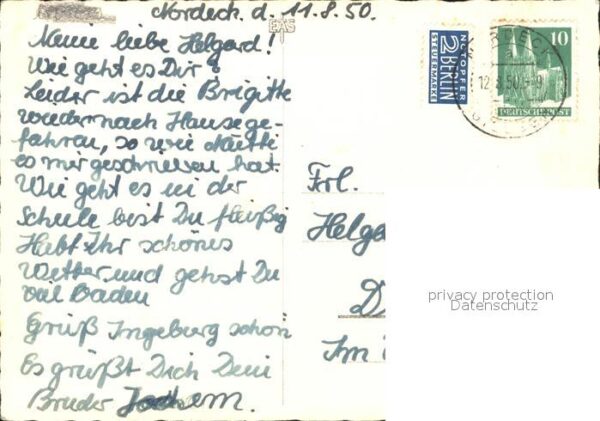 Nordeck d. 11.8.50.
EAS
Meine liebe Helgard!
Wie geht es Dir?
Leider ist die Brigitte
wieder nach Hause ge-
fahren, so wie Mutti
es mir geschrieben hat.
Wie geht es in der
Schule bist Du fleißig
Habt Ihr schönes
Wetter und gehst Du
viel Baden
Grüß Ingeburg schön
Es grüßt Dich Dein
Bruder Jochem.
NOTOPFER
2 BERLIN
STEUERMARKE
10
DEUTSCHE POST
12.8.50.-9
Frl.
Helga
D
Im
privacy protection
Datenschutz